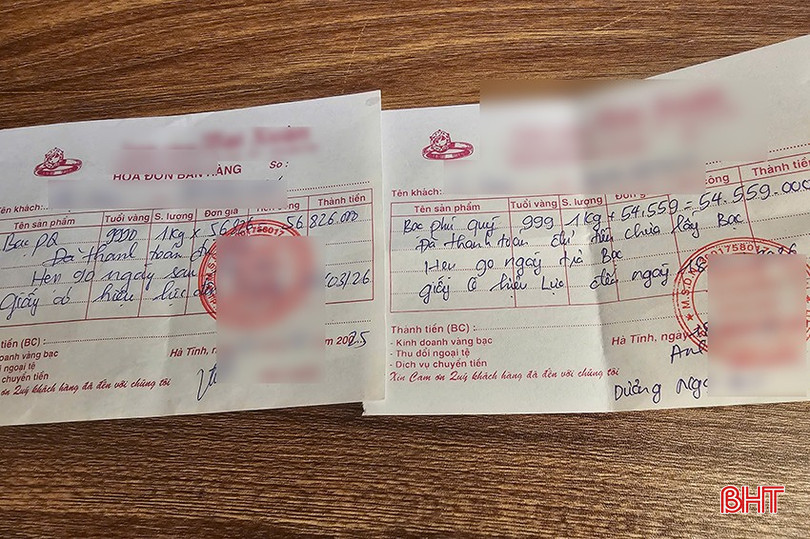 HÓA ĐƠN BÁN HÀNG
So :
Tên sản phẩm Tuổi vàng S. lượng Đơn giá Thành tiền
Bạc PQ 9999 1kg x 56.826 56.826.000
Đã thanh toan đủ
Hẹn 90 ngay sau
Giấy có hiệu lực /03/26
tiền (BC) :
doanh vàng bạc
ngoại tệ
chuyển tiền
Hà Tĩnh, 2025
ơn Quý khách hàng đã đến với chúng tôi
Tên khách:
Tên sản phẩm Tuổi vàng S. lượng công Thành tiền
Bạc phú quý 999 1kg + 54.559 = 54.559.000
Đã thanh toan đủ tiền chưa lấy Bạc
Hẹn 90 ngay trả Bạc
giấy có hiệu lực đến ngày
M.S.D.N
Thành tiền (BC) :
- Kinh doanh vàng bạc
- Thu đổi ngoại tệ
- Dịch vụ chuyển tiền
Hà Tĩnh, ngày
Xin Cam ơn Quý khách hàng đã đến với chúng tôi
Dương Ngọ
BHT